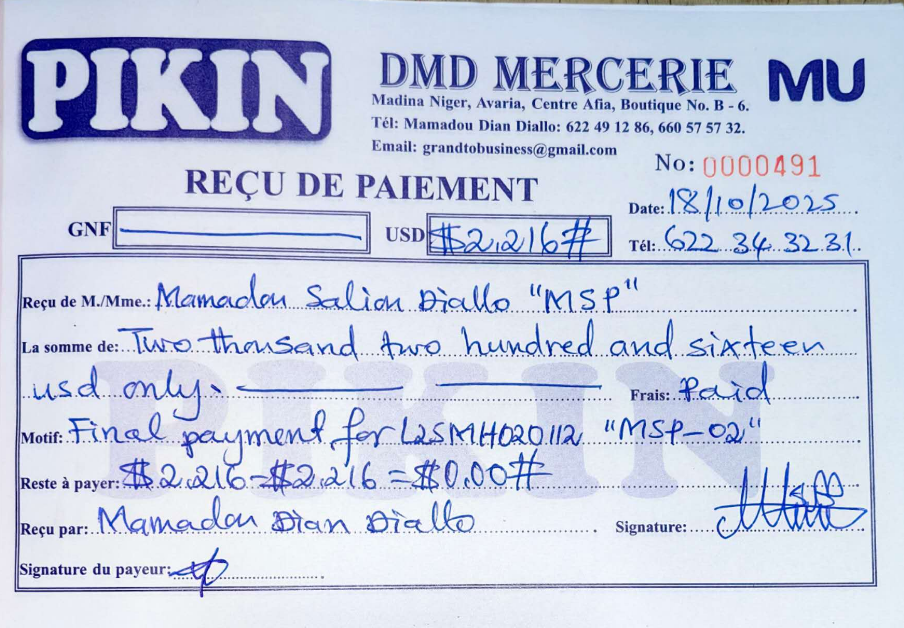 PIKIN
DMD MERCERIE MU
Madina Niger, Avaria, Centre Afia, Boutique No. B - 6.
Tél: Mamadou Dian Diallo: 622 49 12 86, 660 57 57 32.
Email: grandtobusiness@gmail.com
No: 0000491
REÇU DE PAIEMENT
Date: 18/10/2025
GNF
USD $2,216#
Tél: 622 34 32 31
Reçu de M./Mme.: Mamadou Saliou Diallo "MSP"
La somme de: Two thousand two hundred and sixteen
usd only. Frais: Paid
Motif: Final payment for L25MH020112 "MSP-02"
Reste à payer: $2,216-$2,216=$0.00#
Reçu par: Mamadou Dian Diallo Signature:
Signature du payeur:
PIKIN